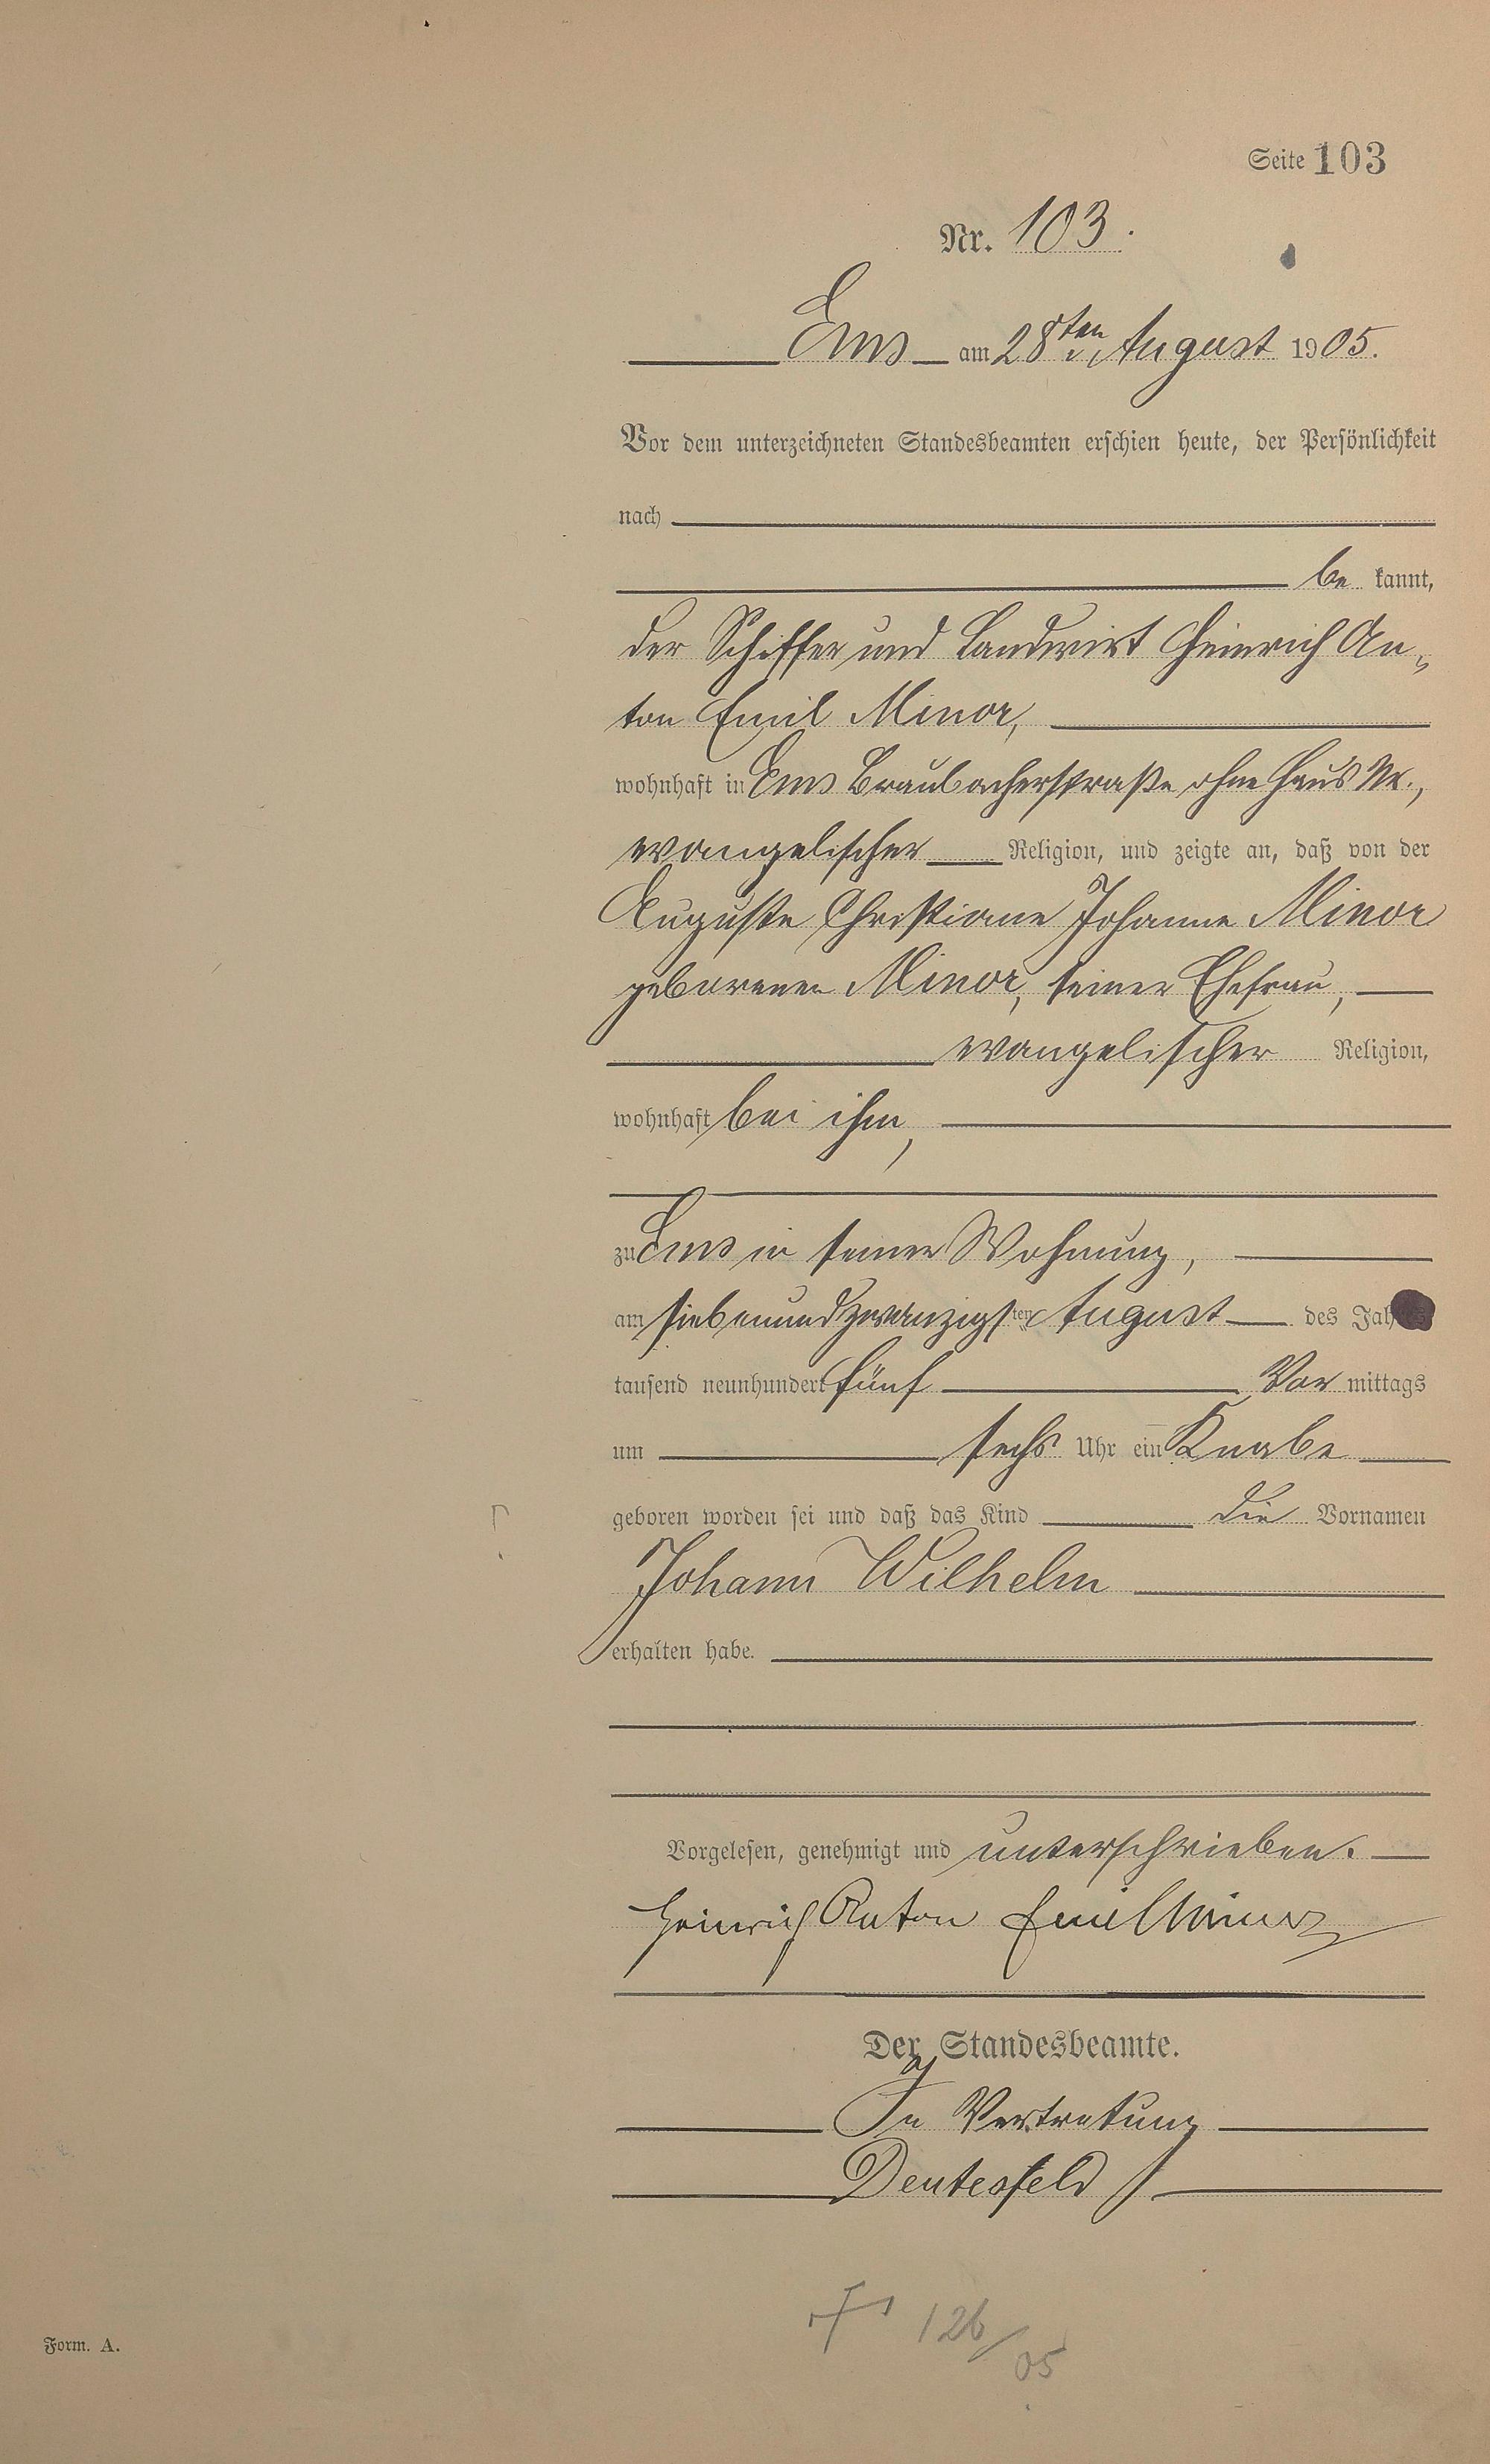 Seite 103
Nr. 103.
Ems am 28ten August 1905.
Vor dem unterzeichneten Standesbeamten erschien heute, der Persönlichkeit
nach
be kannt,
der Schiffer und Landwirt Heinrich An-
ton Emil Minor,
wohnhaft in Ems Braubacherstraße ohne Haus Nr.,
evangelischer Religion, und zeigte an, daß von der
Auguste Christiane Johanna Minor
geborenen Minor, seiner Ehefrau,
evangelischer Religion,
wohnhaft bei ihm,
zu Ems in seiner Wohnung,
am siebenundzwanzigsten August des Jahres
tausend neunhundert fünf Vor mittags
um sechs Uhr ein Knabe
geboren worden sei und daß das Kind die Vornamen
Johann Wilhelm
erhalten habe.
Vorgelesen, genehmigt und unterschrieben.
Heinrich Anton Emil Minor
Der Standesbeamte.
In Vertretung
Deutesfeld
126/05
Form. A.